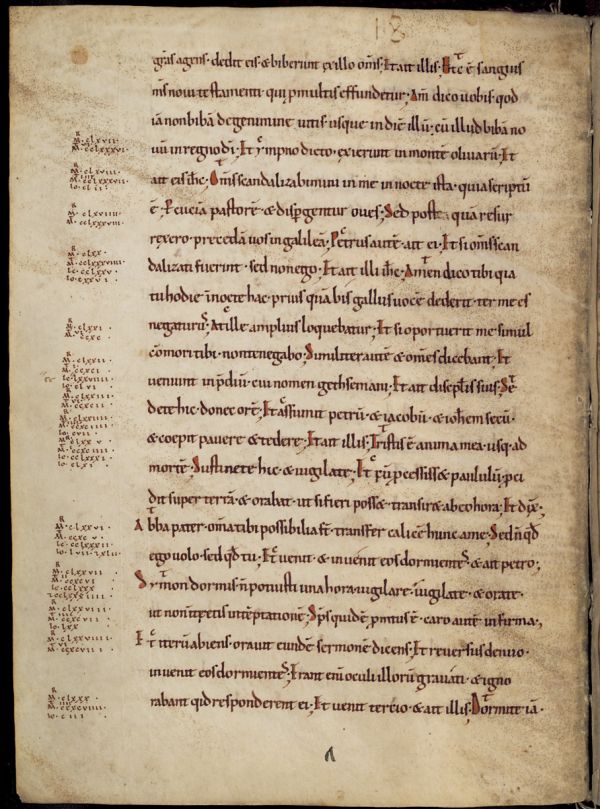 18
gr̄as agens · dedit eis · & biberunt ex illo om̄s ; Et ait illis ; Hic ē sanguis
m̄s noui testamenti qui p multis effundetur · Am̄ dico uobis · qđ
iā non bibā de genimine uitis · usque in diē illū · cū illud bibā no
uū in regno dī ; Et ympno dicto · exierunt in montē oliuarū ; Et
ait eis ih̄c ; Om̄s scandalizabimini in me in nocte ista · quia scriptū
ē · Percuciā pastorē · & dispgentur oues ; Sed postea quā resur
rexero · precedā uos in galileā ; Petrus autē ait ei ; Et si om̄s scan
dalizati fuerint · sed non ego ; Et ait illi ih̄c ; Amen dico tibi quia
tu hodie in nocte hac · prius quā bis gallus uocē dederit · ter me es
negaturus ; At ille amplius loquebatur ; Et si oportuerit me simul
cōmori tibi · non te negabo ; Similiter autē & omēs dicebant ; Et
veniunt in p̄diū · cui nomen gethsemani ; Et ait discip̄lis suis ; Se
dete hic · donec orē ; Et assumit petrū · & iacobū · & ioh̄em secū ·
& coepit pauere & tedere ; Et ait illis ; Tristis ē anima mea · usq; ad
mortē ; Sustinete hic · & uigilate ; Et cū pcessiss& paululū · pci
dit super terrā · & orabat · ut si fieri poss& · transir& ab eo hora ; Et dix̄ ;
Abba pater · om̄ia tibi possibilia st̄ · transfer calicē hunc a me ; Sed n̄ qđ
ego uolo · sed qđ tu ; Et uenit · & inuenit eos dormientes ; & ait petro ;
Symon dormis n̄ potuisti una hora uigilare ; uigilate · & orate ·
ut non intretis in tēptationē ; Sp̄s quidē pmtus ē · caro autē infirma ;
Et iterū abiens · orauit eundē sermonē dicens ; Et reuersus denuo ·
inuenit eos dormientes ; Erant eni oculi illorū grauati · & igno
rabant qid responderent ei ; Et uenit tercio · & ait illis ; Dormite iā ·
M · clxvii ·
M · cclxxxvi ·
M · clxviii ·
M · cclxxxvii ·
io · clii ·
M · clxviiii ·
M · cclxxxviii ·
M · clxx ·
M · cclxxxviiii ·
lc · cclxxv ·
io · cxxvi ·
M · clxxi ·
M · clxxii ·
M · ccxci ·
io · clvi ·
M · clxxiii ·
M · ccxcii ·
M · clxxv ·
io · clxi ·
M · clxxvi ·
M · ccxcv ·
lc · cclxxxii ·
M · clxxvii ·
M · ccxcvi ·
M · clxxviii ·
M · ccxcvii ·
io · lxx ·
M · clxxviiii ·
M · ccxcviii ·
M · clxxx ·
M · ccxcviiii ·
io · ciii ·